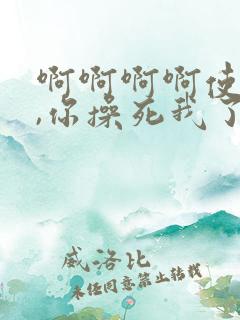 啊啊啊啊使
,你操死我了
威洛比
未经同意禁止转载